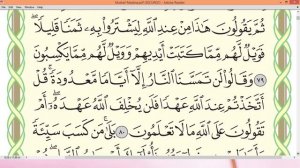 ثُمَّ يَقُولُونَ هَٰذَا مِنْ عِندِ ٱللَّهِ لِيَشْتَرُوا۟ بِهِۦ ثَمَنًا قَلِيلًا
فَوَيْلٌ لَّهُم مِّمَّا كَتَبَتْ أَيْدِيهِمْ وَوَيْلٌ لَّهُم مِّمَّا يَكْسِبُونَ
٧٩ وَقَالُوا۟ لَن تَمَسَّنَا ٱلنَّارُ إِلَّآ أَيَّامًا مَّعْدُودَةً قُلْ
أَتَّخَذْتُمْ عِندَ ٱللَّهِ عَهْدًا فَلَن يُخْلِفَ ٱللَّهُ عَهْدَهُۥٓ أَمْ
تَقُولُونَ عَلَى ٱللَّهِ مَا لَا تَعْلَمُونَ ٨٠ بَلَىٰ مَن كَسَبَ سَيِّئَةً